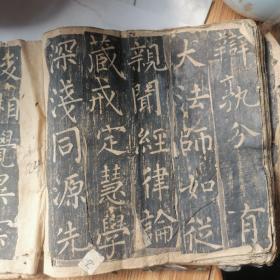 辯孰分有
大法師如從
親聞經律論
藏戒定慧學
深淺同源先
覺異宗